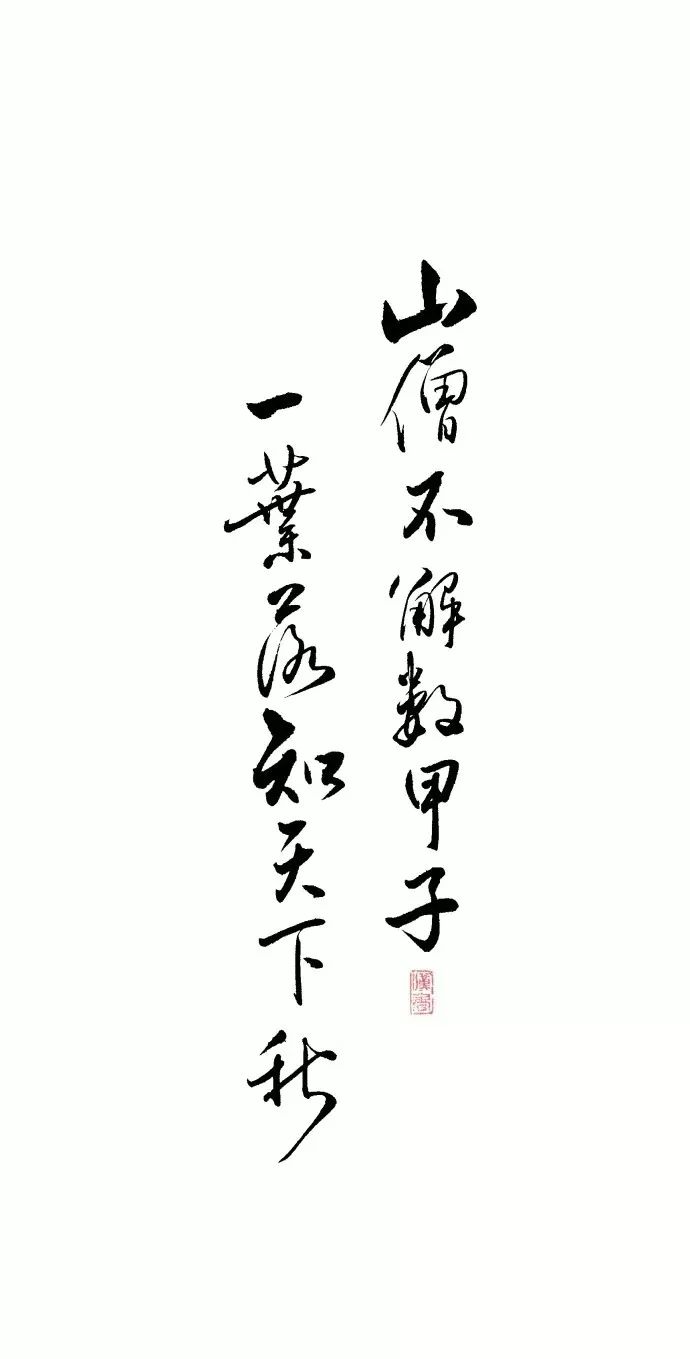 山僧不解數甲子
一葉落知天下秋